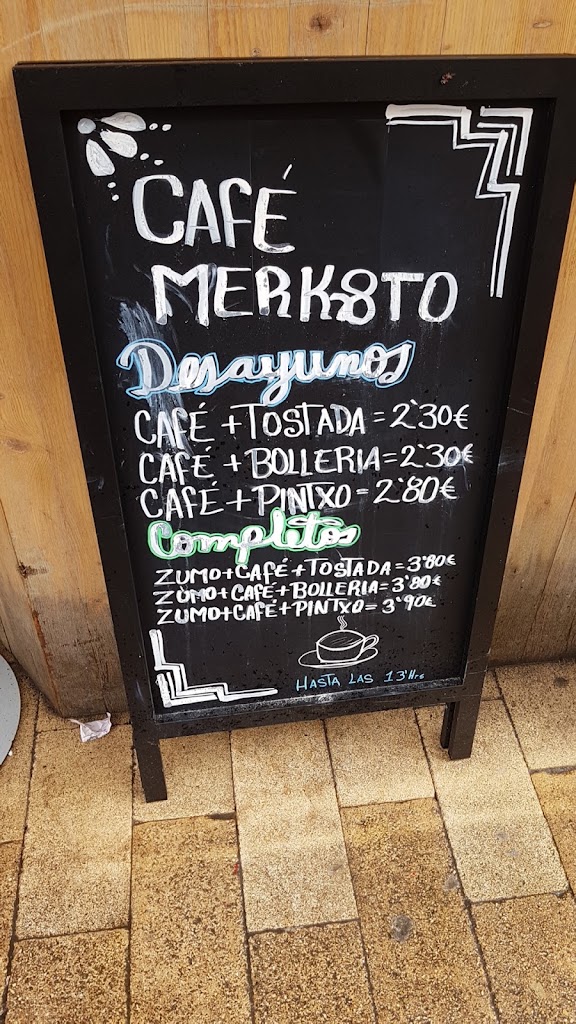 CAFÉ
MERK8TO
Desayunos
CAFÉ + TOSTADA = 2'30€
CAFÉ + BOLLERIA = 2'30€
CAFÉ + PINTXO = 2'80€
Completos
ZUMO+CAFÉ+TOSTADA = 3'80€
ZUMO+CAFÉ+BOLLERIA = 3'80€
ZUMO+CAFÉ+PINTXO = 3'90€
HASTA LAS 13'Hrs